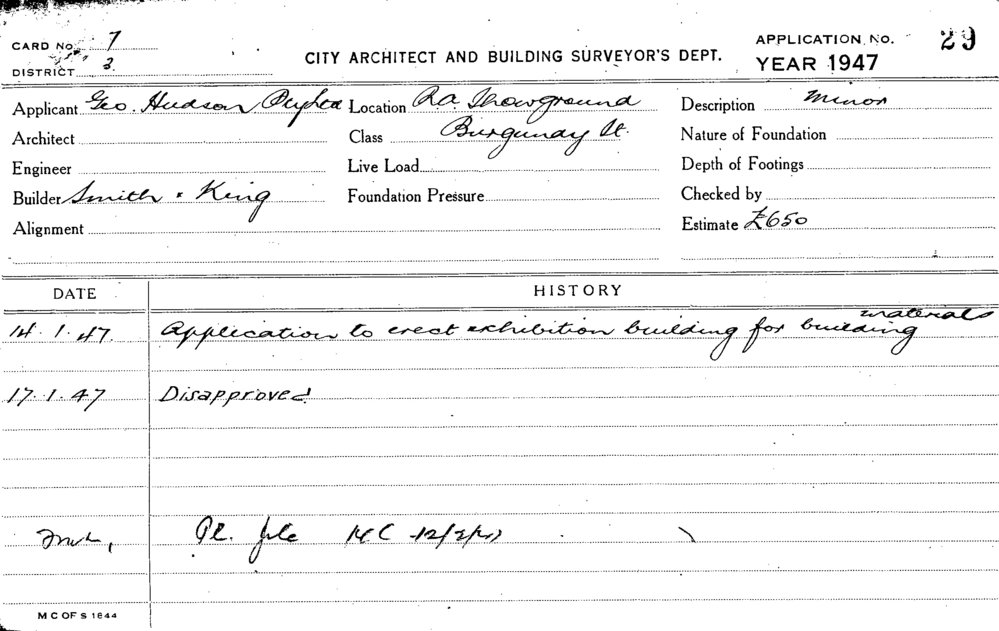 CARD No. 7
DISTRICT 3.
CITY ARCHITECT AND BUILDING SURVEYOR'S DEPT.
APPLICATION NO. 29
YEAR 1947
Applicant Geo. Hudson Location R.A. Showground Description Minor
Architect Class Burgundy St. Nature of Foundation
Engineer Live Load Depth of Footings
Builder Smith & King Foundation Pressure Checked by
Alignment Estimate £650
DATE HISTORY
14.1.47. Application to erect exhibition building for building materials
17.1.47 Disapproved
Pl. file
M C OF S 1844